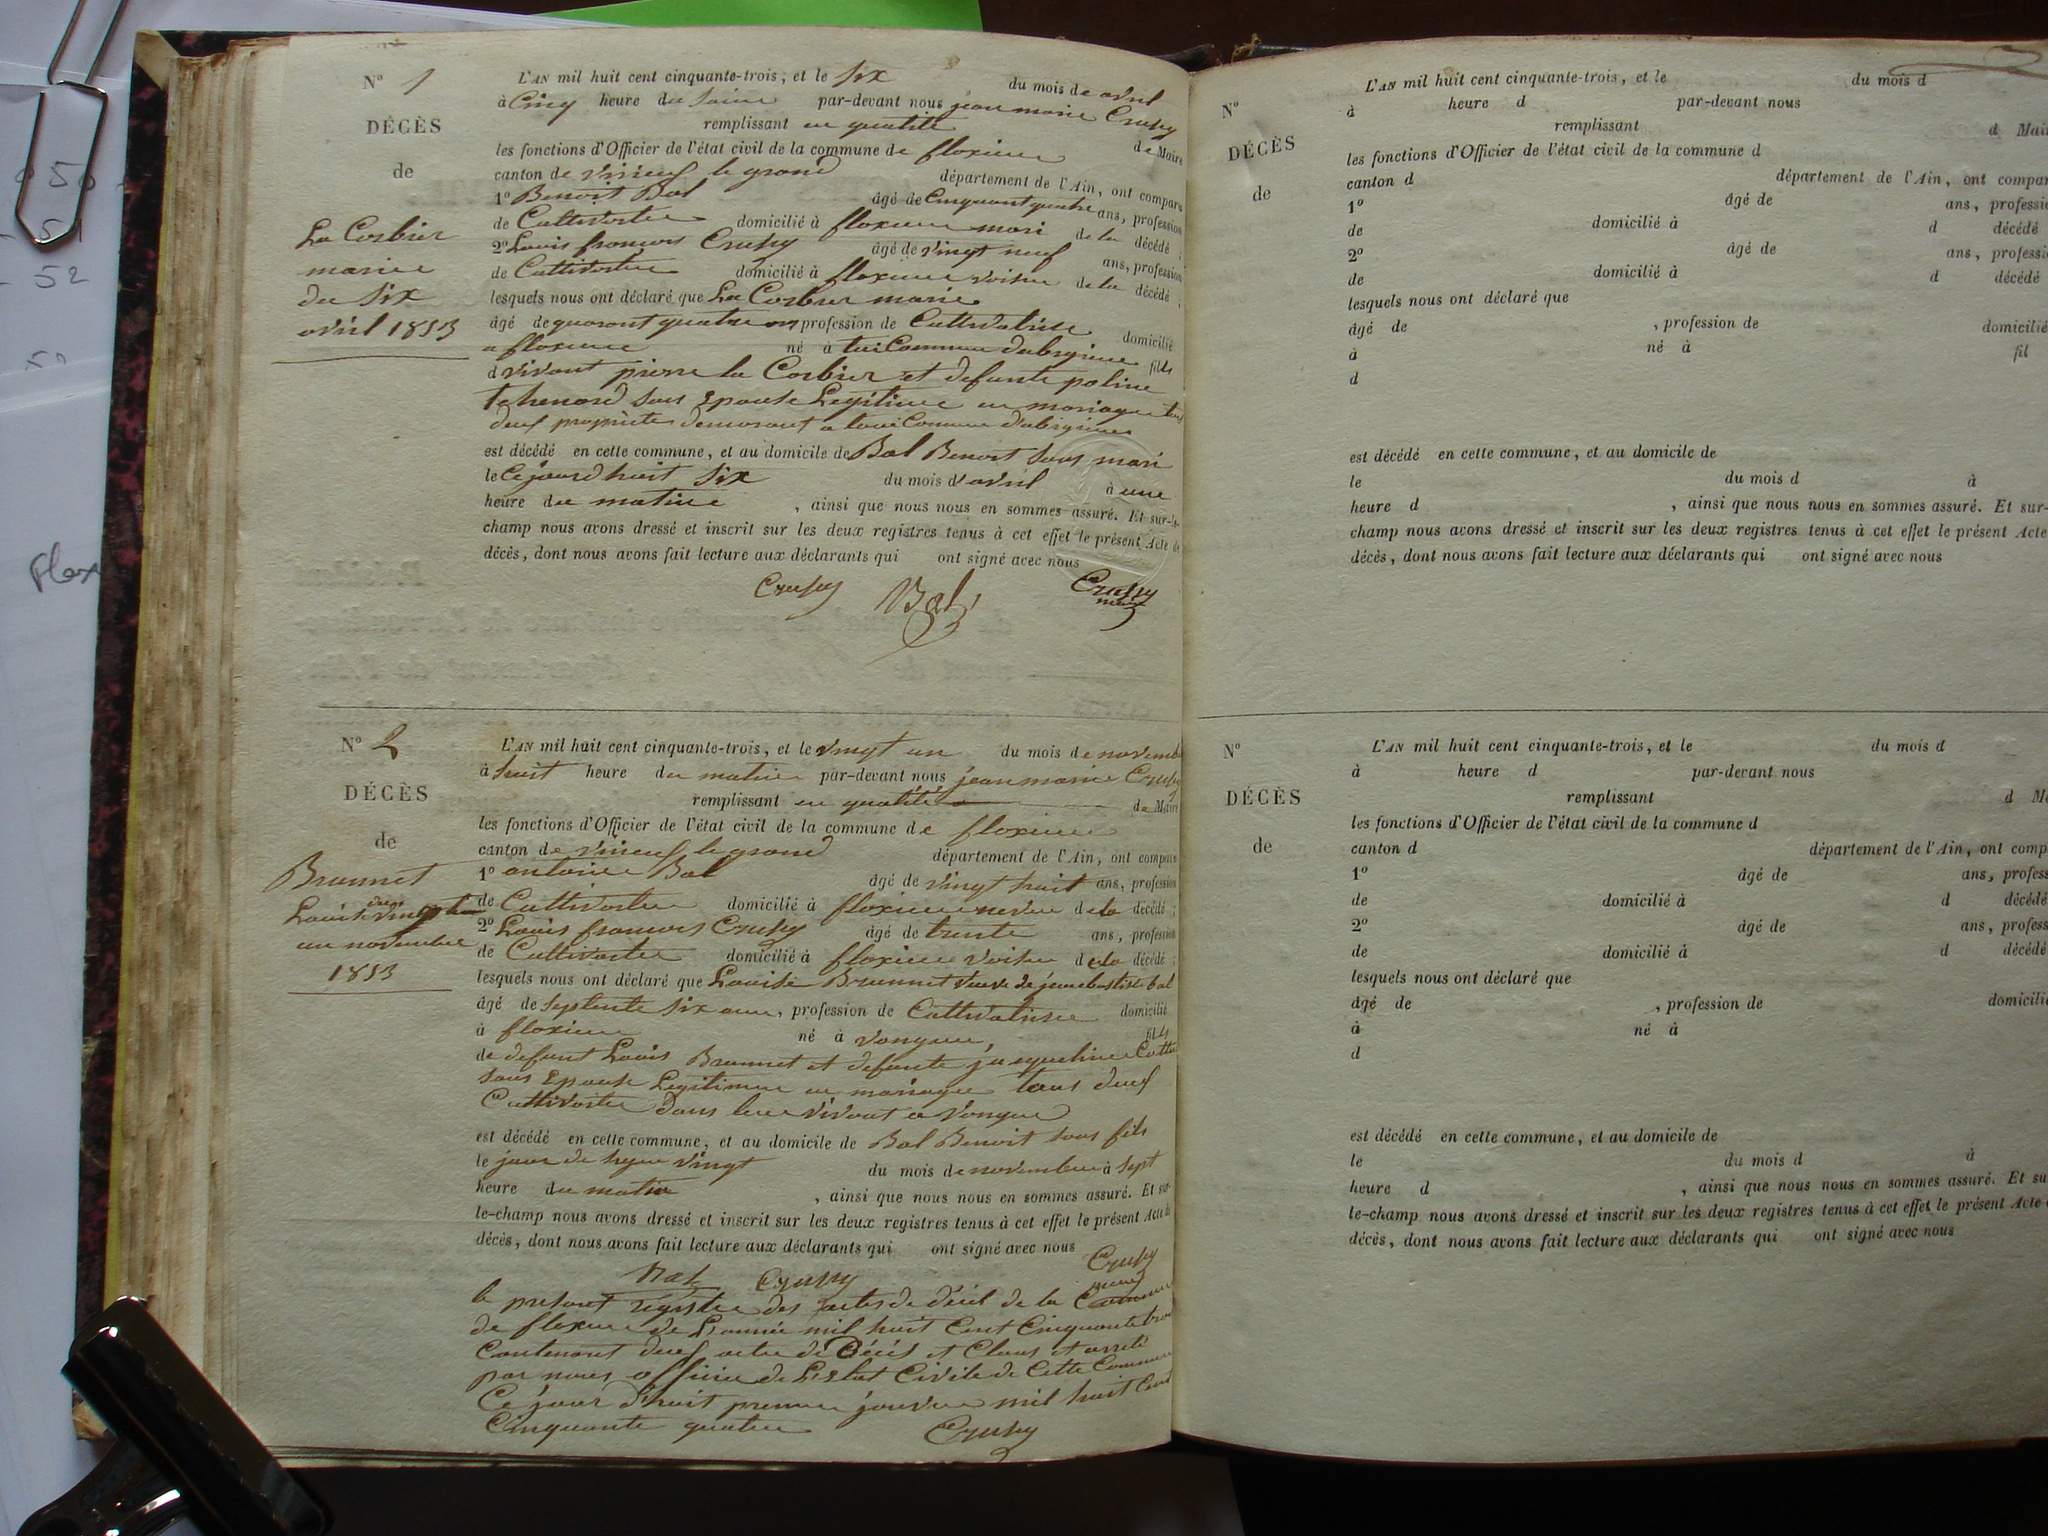 N° 1
DÉCÈS
de
La Corbier
marie
du six
avril 1853
L'AN mil huit cent cinquante-trois, et le six du mois de avril
à Cinq heure du soire par-devant nous jean marie Crussy
remplissant en qualité de Maire
les fonctions d'Officier de l'état civil de la commune de floxieu
canton de virieux le grand département de l'Ain, ont comparu
1° Benoit Bal âgé de Cinquant quatre ans, profession
de Cultivateur domicilié à floxieu mari de la décédé;
2° Louis francois Crussy âgé de vingt neuf ans, profession
de Cultivateur domicilié à floxieu voisin de la décédé;
lesquels nous ont déclaré que La Corbier marie
âgé de quarant quatre profession de Cultivatrice domicilié
a floxieu né à Commune fille
d vivant pierre la Corbier et defunte
sous Epouse Legitime en mariage tous
deux demorant a Commune
est décédé en cette commune, et au domicile de Bal Benoit sous mari
le Cejourdhuit six du mois d'avril à une
heure du matin, ainsi que nous nous en sommes assuré. Et sur-le-
champ nous avons dressé et inscrit sur les deux registres tenus à cet effet le présent Acte de
décès, dont nous avons fait lecture aux déclarants qui ont signé avec nous
Crussy Bal Crussy
maire
N° 2
DÉCÈS
de
Brunnet
Louise du vingt
un novembre
1853
L'AN mil huit cent cinquante-trois, et le vingt un du mois de novembre
à huit heure du matin par-devant nous jean marie Crussy
remplissant en qualité de Maire
les fonctions d'Officier de l'état civil de la commune de floxieu
canton de virieux le grand département de l'Ain, ont comparu
1° antoine Bal âgé de vingt huit ans, profession
de Cultivateur domicilié à floxieu neveu de la décédé;
2° Louis francois Crussy âgé de trente ans, profession
de Cultivateur domicilié à floxieu voisin de la décédé;
lesquels nous ont déclaré que Louise Brunnet veuve de jeanbatiste bal
âgé de septente six ans, profession de Cultivatrice domicilié
à floxieu né à vongne, fille
de defunt Louis Brunnet et defunte jacqueline
sous Epouse Legitimme en mariage tous deux
Cultivateur dans leur vivant a vongne
est décédé en cette commune, et au domicile de Bal Benoit sous fils
le jour de hyer vingt du mois de novembre à sept
heure du matin, ainsi que nous nous en sommes assuré. Et sur-
le-champ nous avons dressé et inscrit sur les deux registres tenus à cet effet le présent Acte de
décès, dont nous avons fait lecture aux déclarants qui ont signé avec nous
Bal Crussy Crussy
maire
le present registre des actes de décé de la Commune
de floxieu de Lannée mil huit Cent Cinquante trois
Contenant deux actes de Décés et Claus et arreté
par nous officier de L'Etat Civile de Cette Commune
Ce jour d'huit premier janvier mil huit Cent
Cinquante quatre Crussy
N°
DÉCÈS
de
L'AN mil huit cent cinquante-trois, et le du mois d
à heure d par-devant nous
remplissant d Mair
les fonctions d'Officier de l'état civil de la commune d
canton d département de l'Ain, ont compar
1° âgé de ans, professi
de domicilié à d décédé
2° âgé de ans, professi
de domicilié à d décédé
lesquels nous ont déclaré que
âgé de , profession de domicilié
à né à fil
d
est décédé en cette commune, et au domicile de
le du mois d à
heure d , ainsi que nous nous en sommes assuré. Et sur-
champ nous avons dressé et inscrit sur les deux registres tenus à cet effet le présent Acte
décès, dont nous avons fait lecture aux déclarants qui ont signé avec nous
N°
DÉCÈS
de
L'AN mil huit cent cinquante-trois, et le du mois d
à heure d par-devant nous
remplissant d Ma
les fonctions d'Officier de l'état civil de la commune d
canton d département de l'Ain, ont comp
1° âgé de ans, profess
de domicilié à d décédé
2° âgé de ans, profess
de domicilié à d décédé
lesquels nous ont déclaré que
âgé de , profession de domicilié
à né à
d
est décédé en cette commune, et au domicile de
le du mois d à
heure d , ainsi que nous nous en sommes assuré. Et su
le-champ nous avons dressé et inscrit sur les deux registres tenus à cet effet le présent Acte
décès, dont nous avons fait lecture aux déclarants qui ont signé avec nous
52